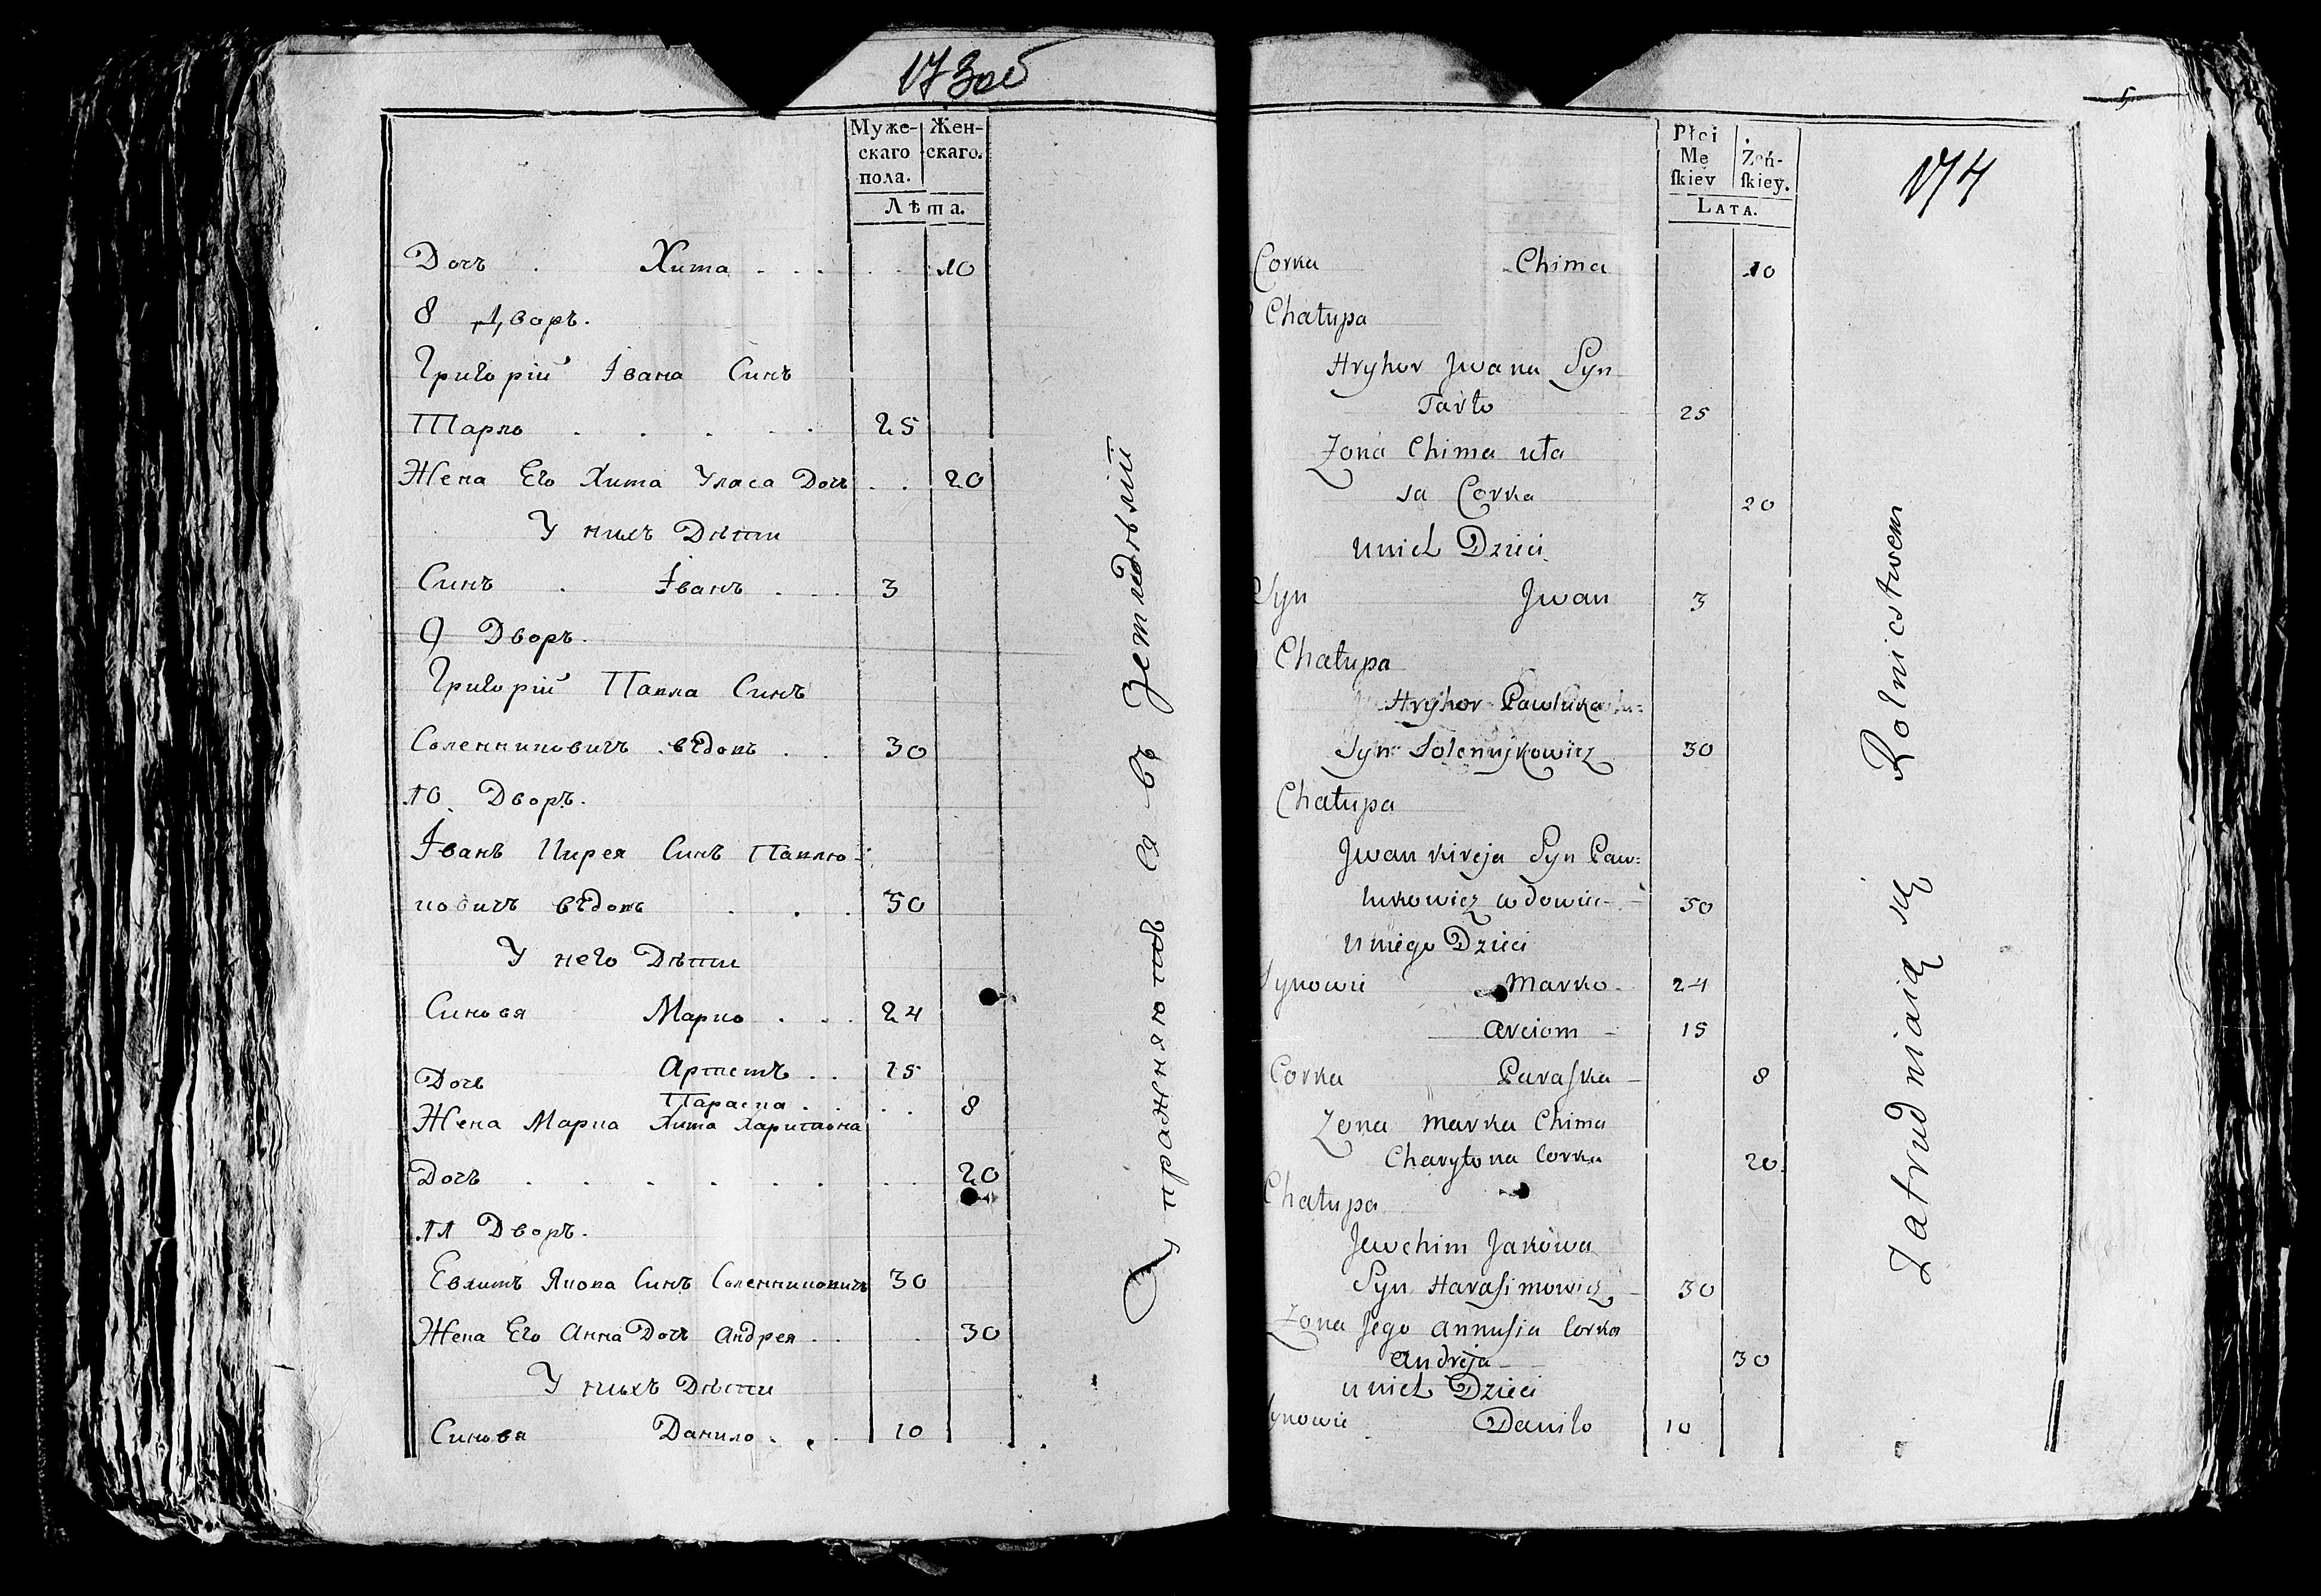 173 об
Муже-
скаго
пола.
Жен-
скаго.
Лѣта.
Дочъ . Хима . . . . . 10
8 Дворъ.
Григорій Івана Синъ
Тарло . . . . . 25
Жена Его Хима Уласа Дочъ . . 20
У нихъ Дѣти
Синъ . Іванъ . . . 3
9 Дворъ.
Григорій Павла Синъ
Соленниковичъ вѣдовъ . . 30
10 Дворъ.
Іванъ Кирея Синъ Павлю-
ковичъ вѣдовъ . . . 50
У него Дѣти
Синовя Марко . . . 24
Артемъ . . 15
Дочъ
Параска . . . . 8
Жена Марка Хима Харитона
Дочъ . . . . . . . . 20
11 Дворъ.
Евхимъ Якова Синъ Соленниковичъ 30
Жена Его Анна Дочъ Андрея . . . 30
У нихъ Дѣти
Синовя Данило . . . 10
Упражняютъ ся въ Земледѣлій
5
174
Płci
Mę
ſkiey
Żeń-
ſkiey.
LATA.
Corka Chima 10
Chałupa
Hryhor Jwana Syn
Tarło 25
Zona Chima uła
sa Corka 20
unich Dzieci
Syn Jwan 3
Chałupa
Hryhor Pawluka
Syn Solennykowicz 30
Chałupa
Jwan kireja Syn Paw:
lukowicz wdowiec - 50
u niego Dzieci
Synowie Marko - 24
Arciom - 15
Corka Paraſka - 8
Zona Marka Chima
Charytona Corka 20
Chałupa
Jewchim Jakowa
Syn Haraſimowicz - 30
Zona Jego Annuſia Corka
Andreja - 30
u nich Dzieci
Synowie Daniło 10
Zatrudniaią się Rolnicstwem